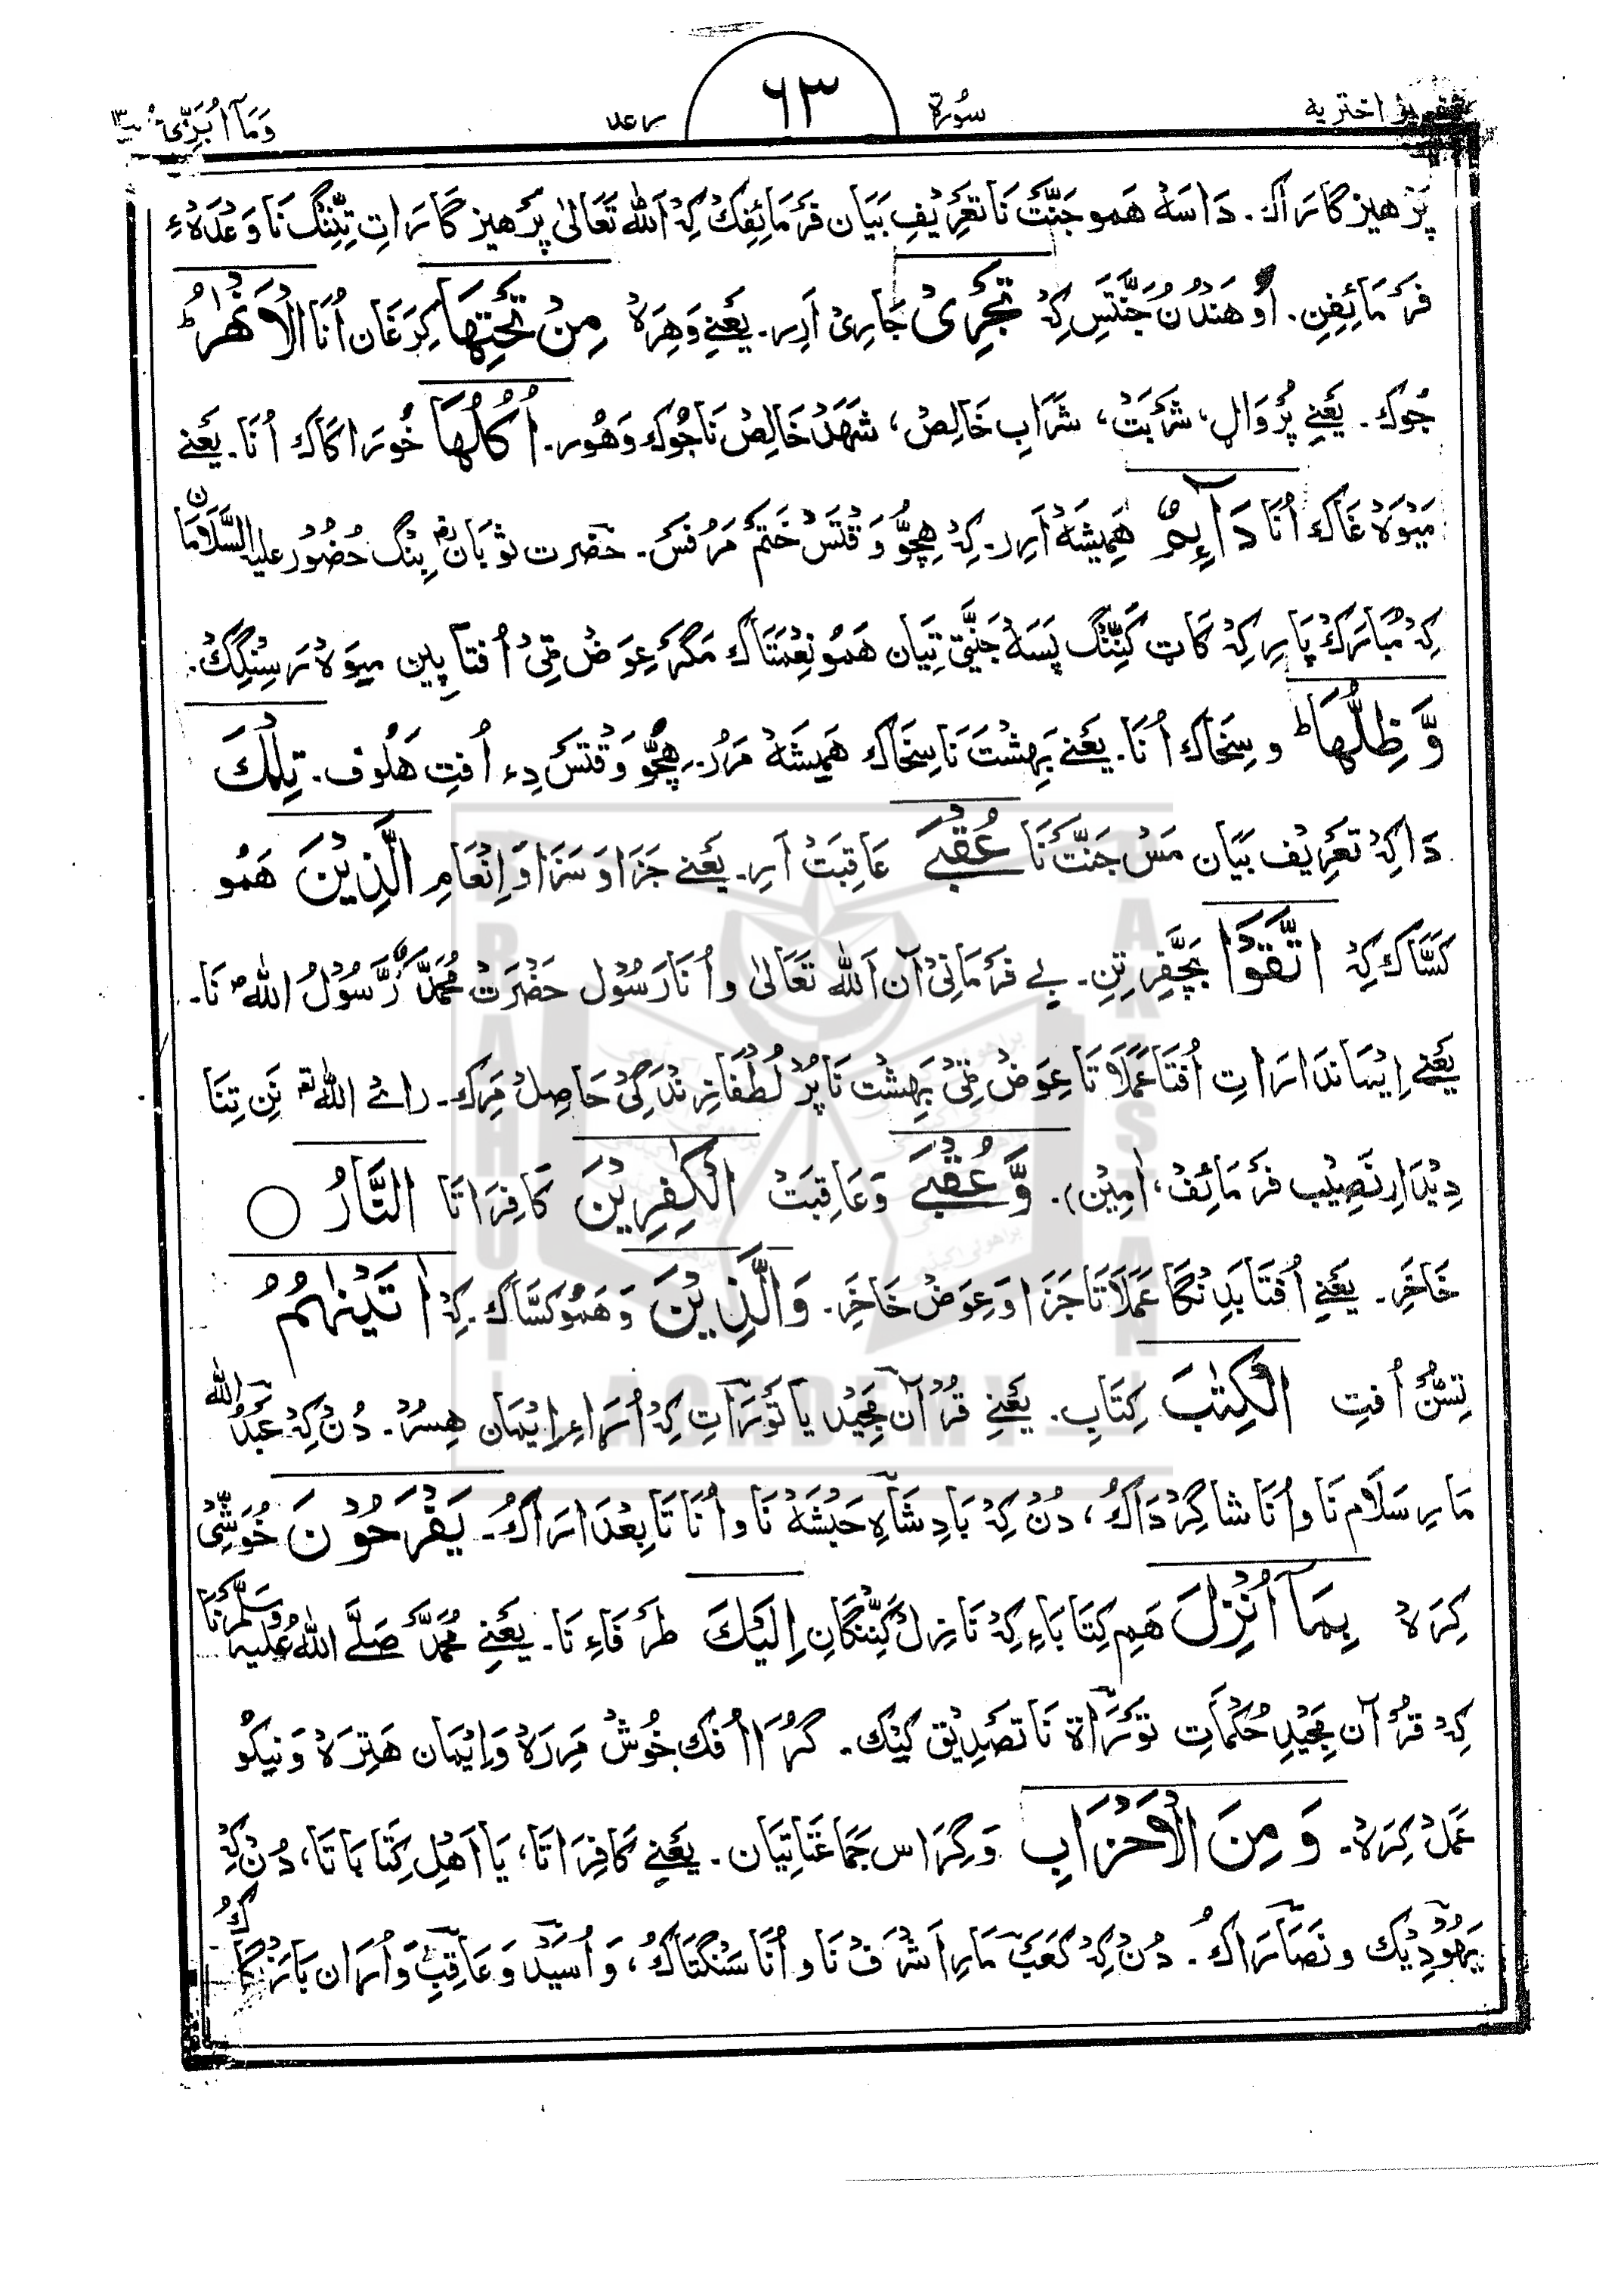 تفسیر اختریہ سُورۃ ٦٣ رعد وَمَآ اُبَرِّئُ ١٣
پَرْهیز گارَاک. دَاسَہ هَمو جَنَّت نَا تَعْرِیْفِ بَیَان فَرْمَائِفِک کِہ اَللّٰہ تَعَالیٰ پَرْهیز گارَاتِ تِنِّنْگ نَا وَعْدَہءِ
فَرْمَائِفِن. اُو هَنْدُنُ جَنَّتَس کِہ تَجْرِیْ جَارِیْ اَرِر. یَعْنِے وَهِرَہ مِنْ تَحْتِهَا کِرَغَان اُنَا الْاَنْهٰرُ ط
جُوک. یَعْنِے پُر وَالِ، شَرْبَتْ، شَرَابِ خَالِصْ، شَهْدِ خَالِصْ نَا جُوک وَهُور. اُکُلُهَا خُورَاکَاک اُنَا. یَعْنِے
مَیْوَہ غَاک اُنَا دَآئِمٌ هَمِیْشَہ اَرِر. کِہ هِچُّ وَقْتَسْ خَتْم مَرُفَسْ. حَضْرت ثَوْبَانؓ بِنْگ حُضُوْر علیہ السَّلَامَان
کِہ مُبَارَک پَارِ کِہ کَات کَنِّنْگ پَسَہ جَنَّتِیْ تِیَان هَمُو نِعْمَتَاک مَگَر عِوَضْ قِیْ اُفْتَا پِین مِیوَہ رَسِنْگِک.
وَّظِلُّهَا ط و سِخَاک اُنَا. یَعْنِے بَهِشْت نَا سِخَاک هَمِیْشَہ مَرُر. هِچُّ وَقْتَسْ دِء اُفْتِ هَلُوْف. تِلْکَ
دَا کِہ تَعْرِیْف بَیَان مَسْ جَنَّت نَا عُقْبَے عَاقِبَتْ اَرِ. یَعْنِے جَزَا وَ سَزَا وَ اِنْعَامِ الَّذِیْنَ هَمُو
کَسَّاک کِہ اتَّقَوْا بَچِّفِرِ تِن. بے فَرْمَانِیْ آن اَللّٰہ تَعَالیٰ و اُنَا رَسُوْل حَضْرَتْ مُحَمَّدْ رَّسُوْلُ اللّٰہ ص نَا.
یَعْنِے اِیْمَاندَارَاتِ اُفْتَا عَمَلَاتَا عِوَضْ قِیْ بَهِشْت نَا پُرْ لُطْفَا زِنْدَگِیْ حَاصِلْ مَرِک. اللّٰہ تع نَنِ تِنَا
دِیْدَارِ نَصِیْب فَرْمَائِف، اٰمِیْن). وَّعُقْبَے وَعَاقِبَتْ الْکٰفِرِیْنَ کَافِرَاتَا النَّارُ ○
خَاخَرِ. یَعْنِے اُفْتَا بَدِنْگَا عَمَلَاتَا جَزَا وَ عِوَضْ خَاخَرِ. وَالَّذِیْنَ وَ هَمُو کَسَّاک. کِہ اٰتَیْنٰهُمُ
تِسُنُ اُفْتِ الْکِتٰبَ کِتَابِ. یَعْنِے قُرْآنِ مَجِیْد یَا تَوْرَاتِ کِہ اُرَاءِ اِیْمَان هِسُرْ. دُنْ کِہ عَبْدُ اللّٰہ
مَارِ سَلَام نَا و اُنَا شاگِرْدَاکُ، دُنْ کِہ بَادِشَاہِ حَبْشَہ نَا و اُنَا تَابِعْدَارَاکُ. یَفْرَحُوْنَ خُوشِّیْ
کِرَہ بِمَآ اُنْزِلَ هَمِ کِتَابَاءِ کِہ نَازِلْ کَنِّنْگَان اِلَیْکَ طَرْفَاءِ نَا. یَعْنِے مُحَمَّدْ صَلَّے اللّٰہُ عَلَیْہِ وَسَلَّمَ نَا
کِہ قُرْآن مَجِیْدِ حُکْمَاتِ تَوْرَاۃ نَا تَصْدِیْق کَیْک. گُڑَا اُفک خُوشْ مَرِرَہ وَ اِیْمَان هَتِرَہ وَ نیکو
عَمَلْ کِرَہ. وَ مِنَ الْاَحْزَابِ وَ گِرَاس جَمَاعَتَاتِیَان. یَعْنِے کَافِرَاتَا، یَا اَهْلِ کِتَابَاتَا، دُنْ کِہ
یَهُوْدِیْک و نَصَارَاکُ. دُنْ کِہ کَعْب مَارِ اَشْرَفْ نَا و اُنَا سَنْگَتَاکُ، وَ اُسَیْد وَ عَاقِب وَ اُرَان بَارَزْگَاکُ
BRAHUI ACADEMY PAKISTAN